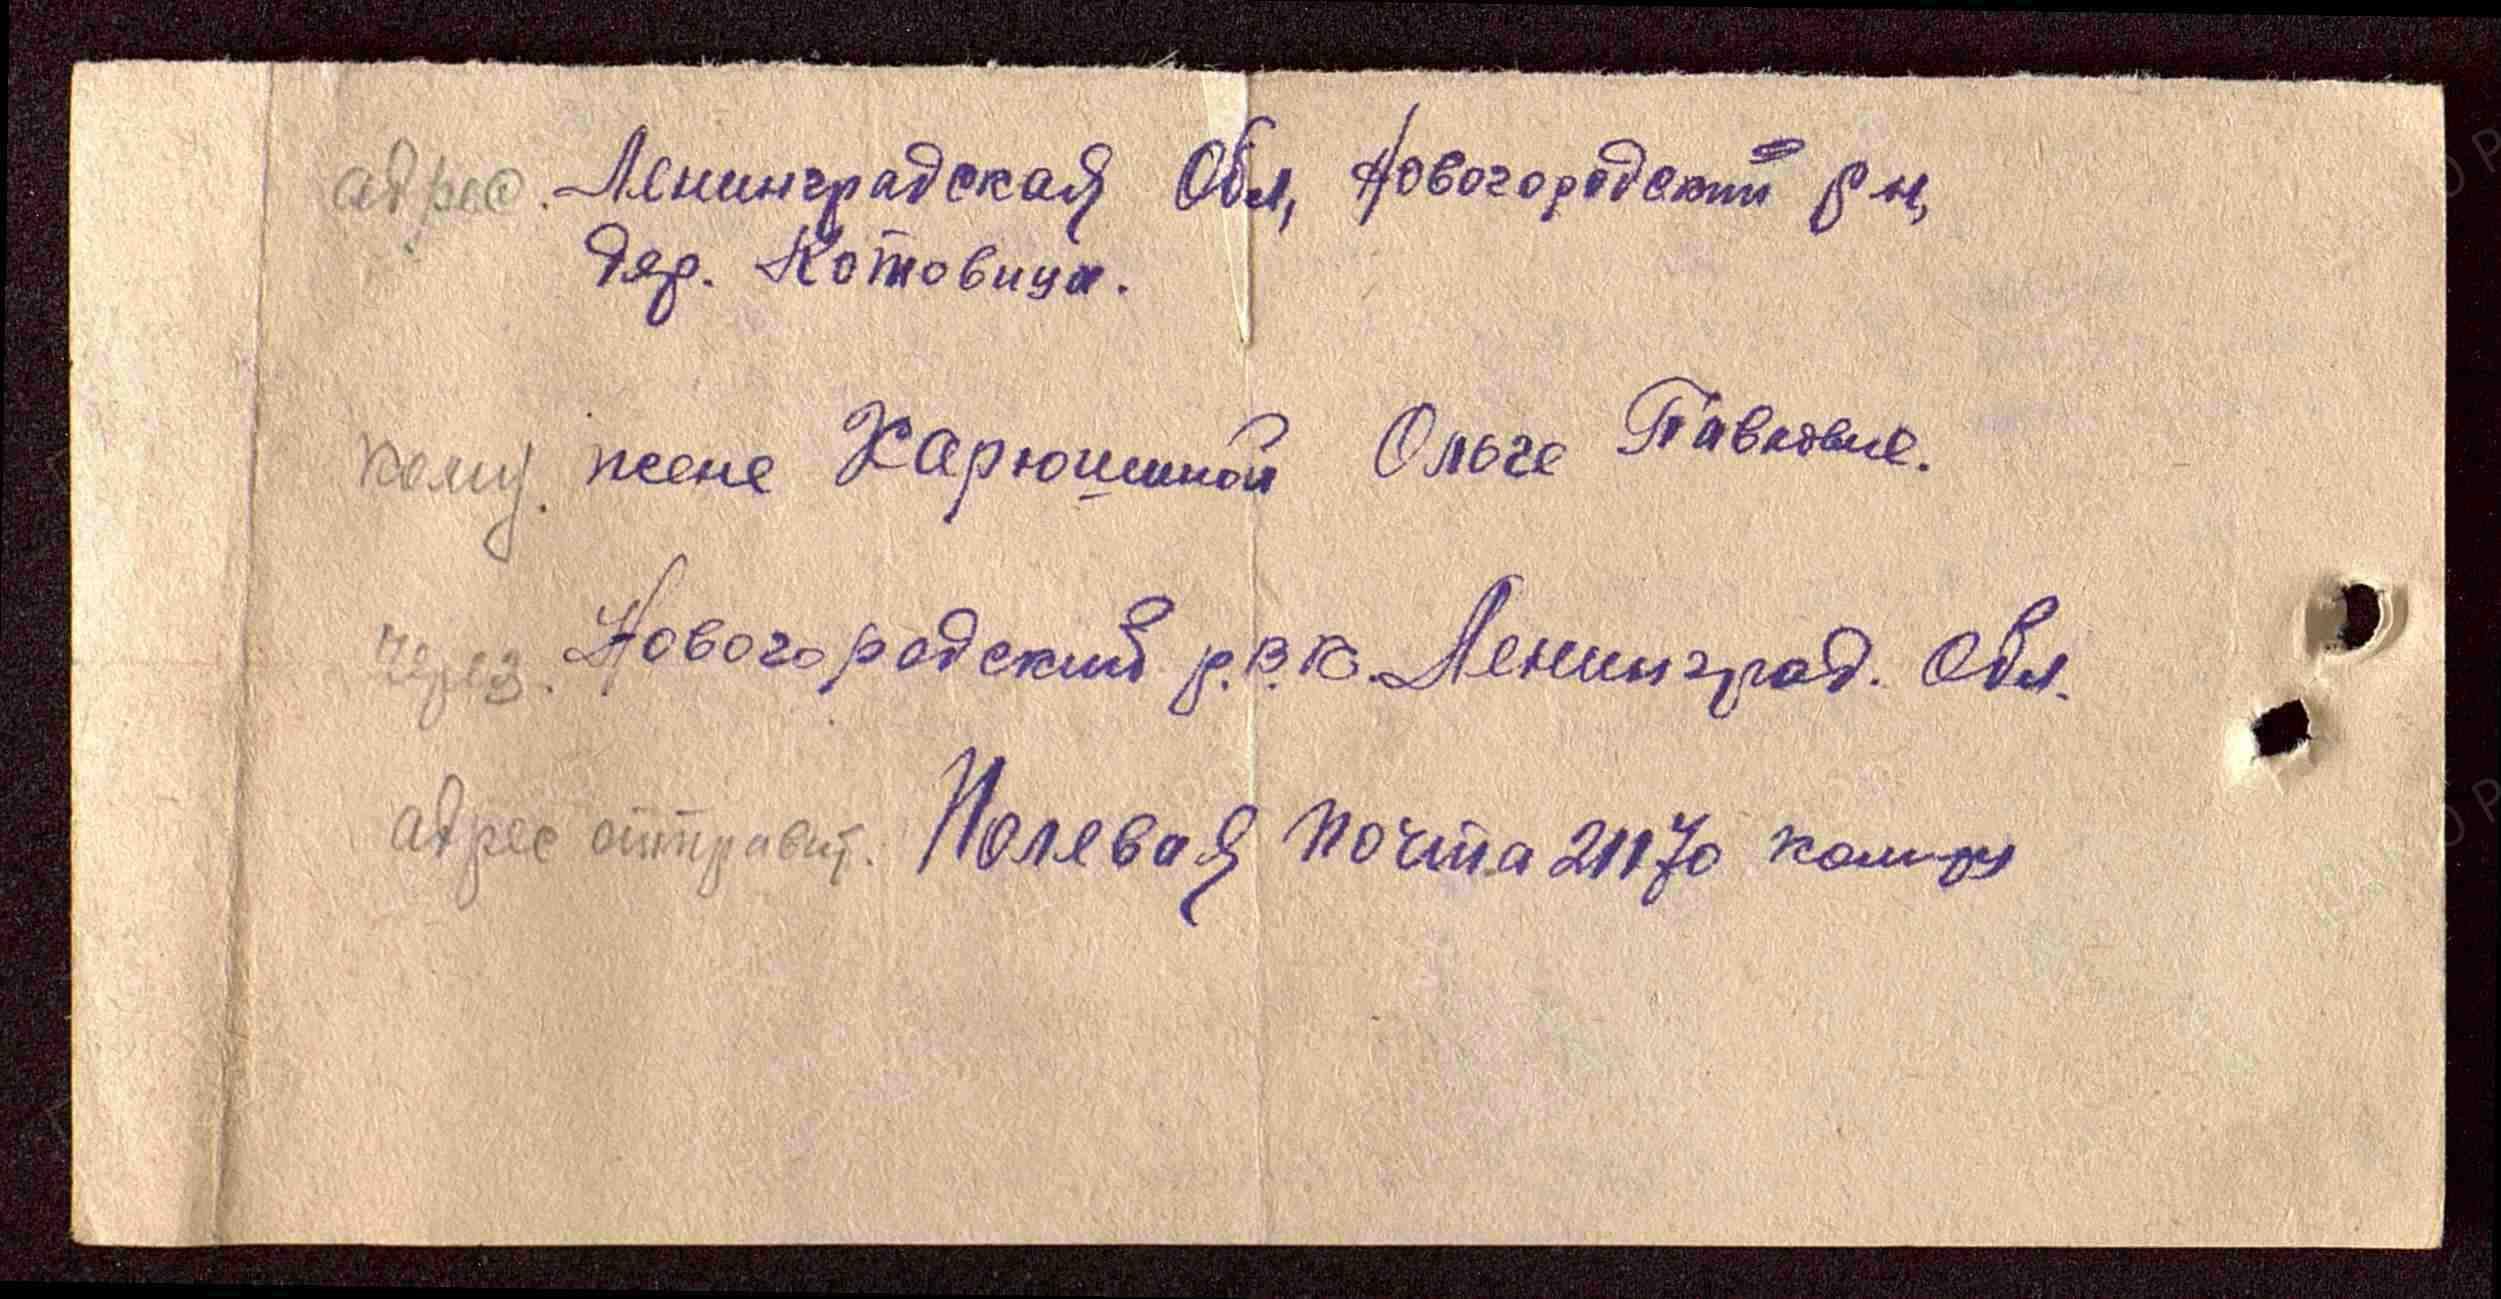 адрес. Ленинградская Обл, Новогородский р н,
дер. Котовицы.
кому. жене Карюшиной Ольге Павловне.
через. Новогородский р.В.К. Ленинград. Обл.
адрес отправит. Полевая почта 21170